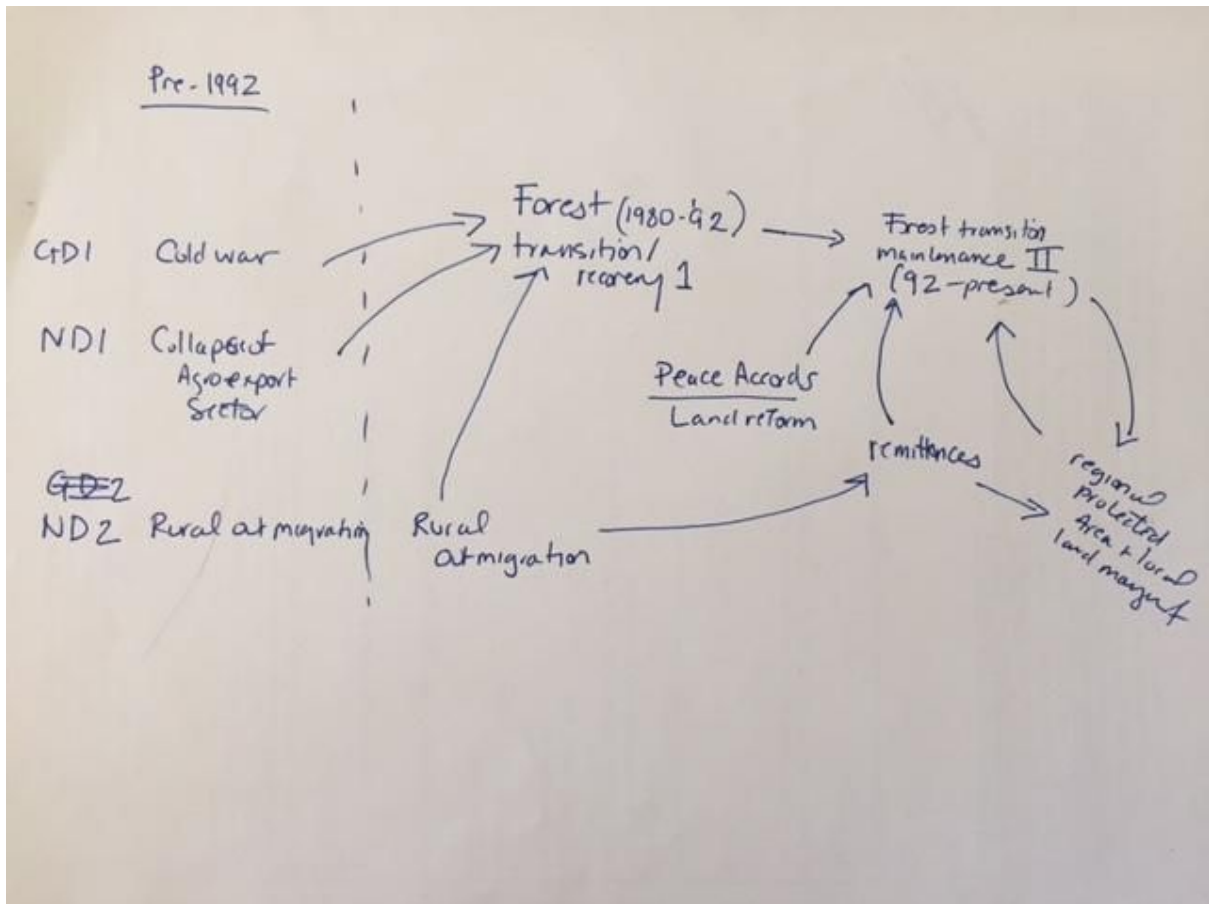 Pre-1992
GD1 Cold war
ND1 Collapse of
Agroexport
Sector
GD2
ND2 Rural outmigration
Forest (1980-92)
transition/
recovery 1
Rural
outmigration
Peace Accords
Land reform
Forest transition
maintenance II
(92-present)
remittances
regional
protected
Area + local
land mangmt